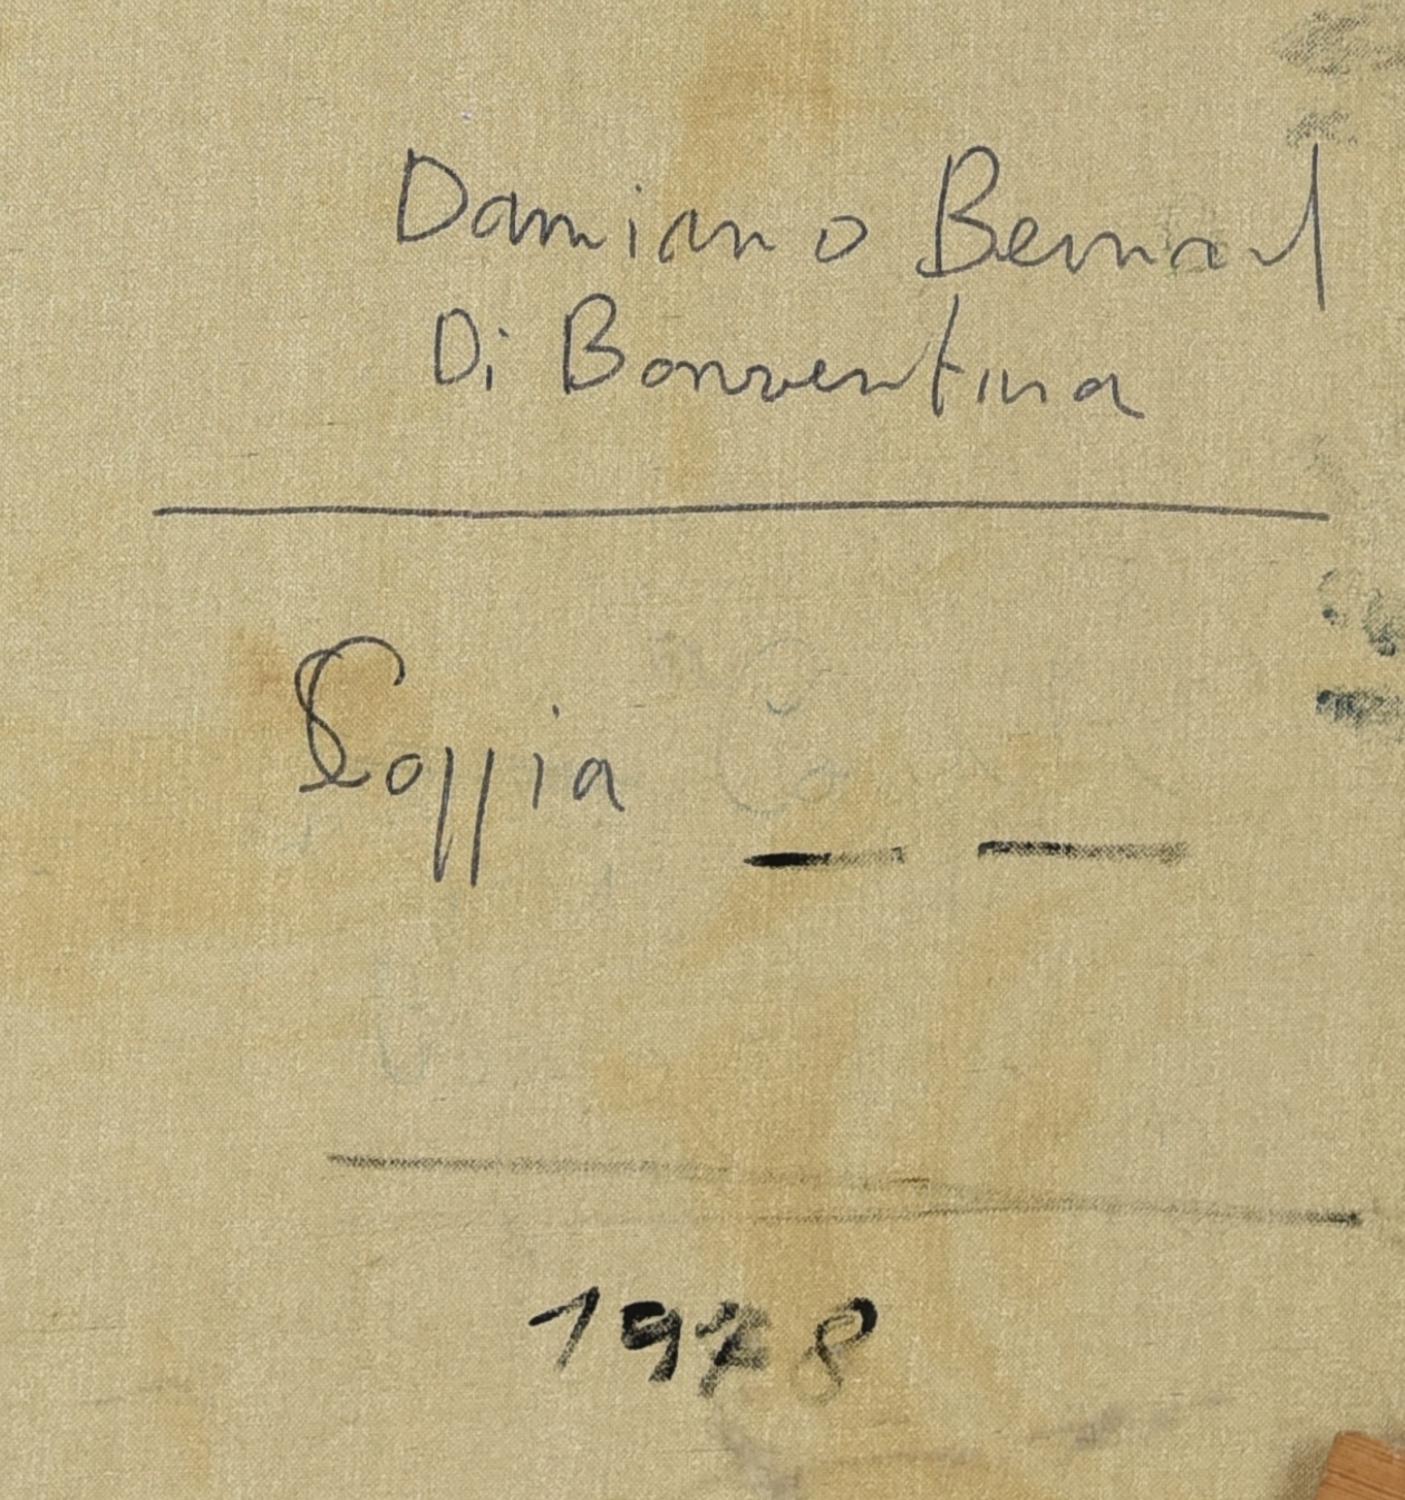 Damiano Bernard
Di Bonventina
Coppia
1978